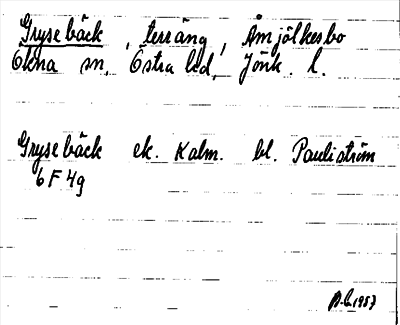 Grysebäck, terräng, Åmjölkesbo
Ökna sn, Östra hd, Jönk. l.
Grysebäck ek. Kalm. bl. Pauliström
6F4g
1957